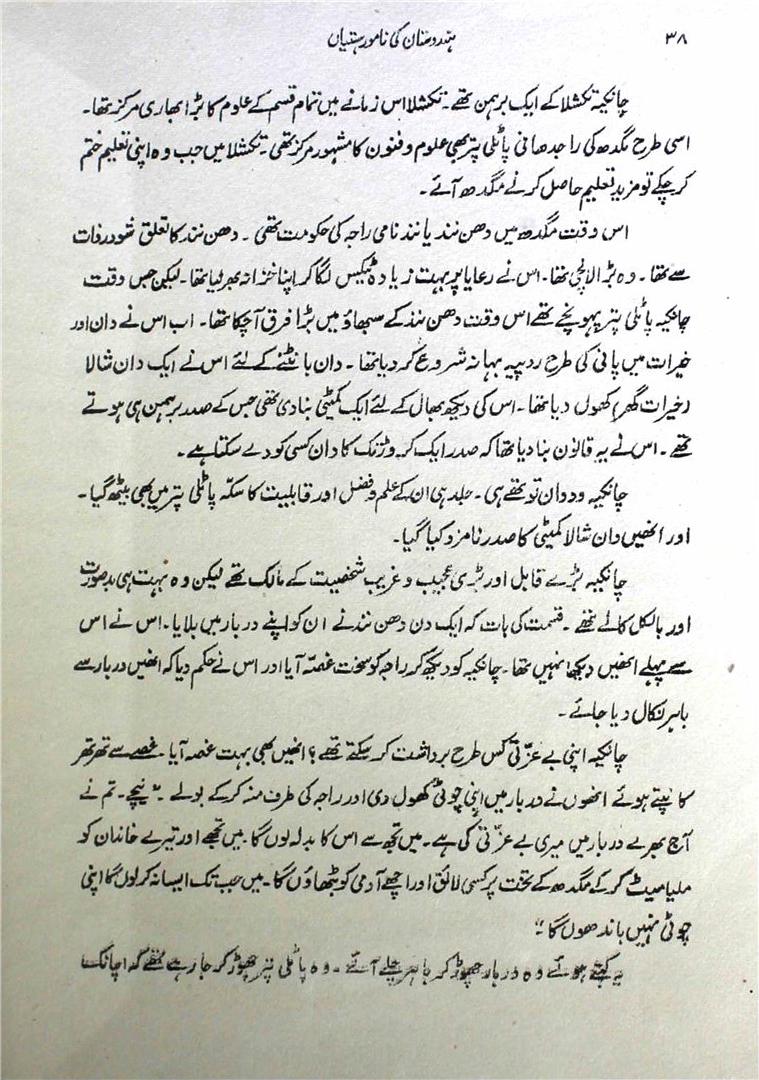 ۳۸
ہندوستان کی نامور ہستیاں
چانکیہ تکشلا کے ایک برہمن تھے۔ تکشلا اس زمانے میں تمام قسم کے علوم کا بڑا بھاری مرکز تھا۔
اسی طرح مگدھ کی راجدھانی پاٹلی پتر بھی علوم و فنون کا مشہور مرکز تھی۔ تکشلا میں جب وہ اپنی تعلیم ختم
کر چکے تو مزید تعلیم حاصل کرنے مگدھ آئے۔
اس وقت مگدھ میں دھن نند یا نند نامی راجہ کی حکومت تھی۔ دھن نند کا تعلق شودر ذات
سے تھا۔ وہ بڑا لالچی تھا۔ اس نے رعایا پر بہت زیادہ ٹیکس لگا کر اپنا خزانہ بھر لیا تھا۔ لیکن جس وقت
چانکیہ پاٹلی پتر پہونچے تھے اس وقت دھن نند کے سبھاؤ میں بڑا فرق آ چکا تھا۔ اب اس نے دان اور
خیرات میں پانی کی طرح روپیہ بہانہ شروع کر دیا تھا۔ دان بانٹنے کے لئے اس نے ایک دان شالا
(خیرات گھر) کھول دیا تھا۔ اس کی دیکھ بھال کے لئے ایک کمیٹی بنا دی تھی جس کے صدر برہمن ہی ہوتے
تھے۔ اس نے یہ قانون بنا دیا تھا کہ صدر ایک کروڑ تک کا دان کسی کو دے سکتا ہے۔
چانکیہ ودوان تو تھے ہی۔ جلد ہی ان کے علم و فضل اور قابلیت کا سکہ پاٹلی پتر میں بھی بیٹھ گیا۔
اور انھیں دان شالا کمیٹی کا صدر نامزد کیا گیا۔
چانکیہ بڑے قابل اور بڑی عجیب و غریب شخصیت کے مالک تھے لیکن وہ بہت ہی بدصورت
اور بالکل کالے تھے۔ قسمت کی بات کہ ایک دن دھن نند نے ان کو اپنے دربار میں بلایا۔ اس نے اس
سے پہلے انھیں دیکھا نہیں تھا۔ چانکیہ کو دیکھ کر راجہ کو سخت غصّہ آیا اور اس نے حکم دیا کہ انھیں دربار سے
باہر نکال دیا جائے۔
چانکیہ اپنی بے عزّتی کس طرح برداشت کر سکتے تھے؟ انھیں بھی بہت غصہ آیا۔ غصے سے تھر تھر
کانپتے ہوئے انھوں نے دربار میں اپنی چوٹی کھول دی اور راجہ کی طرف منہ کر کے بولے۔ "نیچ۔ تم نے
آج بھرے دربار میں میری بے عزّتی کی ہے۔ میں تجھ سے اس کا بدلہ لوں گا۔ میں تجھے اور تیرے خاندان کو
ملیامیٹ کر کے مگدھ کے تخت پر کسی لائق اور اچھے آدمی کو بٹھاؤں گا۔ میں جب تک ایسا نہ کر لوں گا اپنی
چوٹی نہیں باندھوں گا"
یہ کہتے ہوئے وہ دربار چھوڑ کر باہر چلے آئے۔ وہ پاٹلی پتر چھوڑ کر جا رہے تھے کہ اچانک